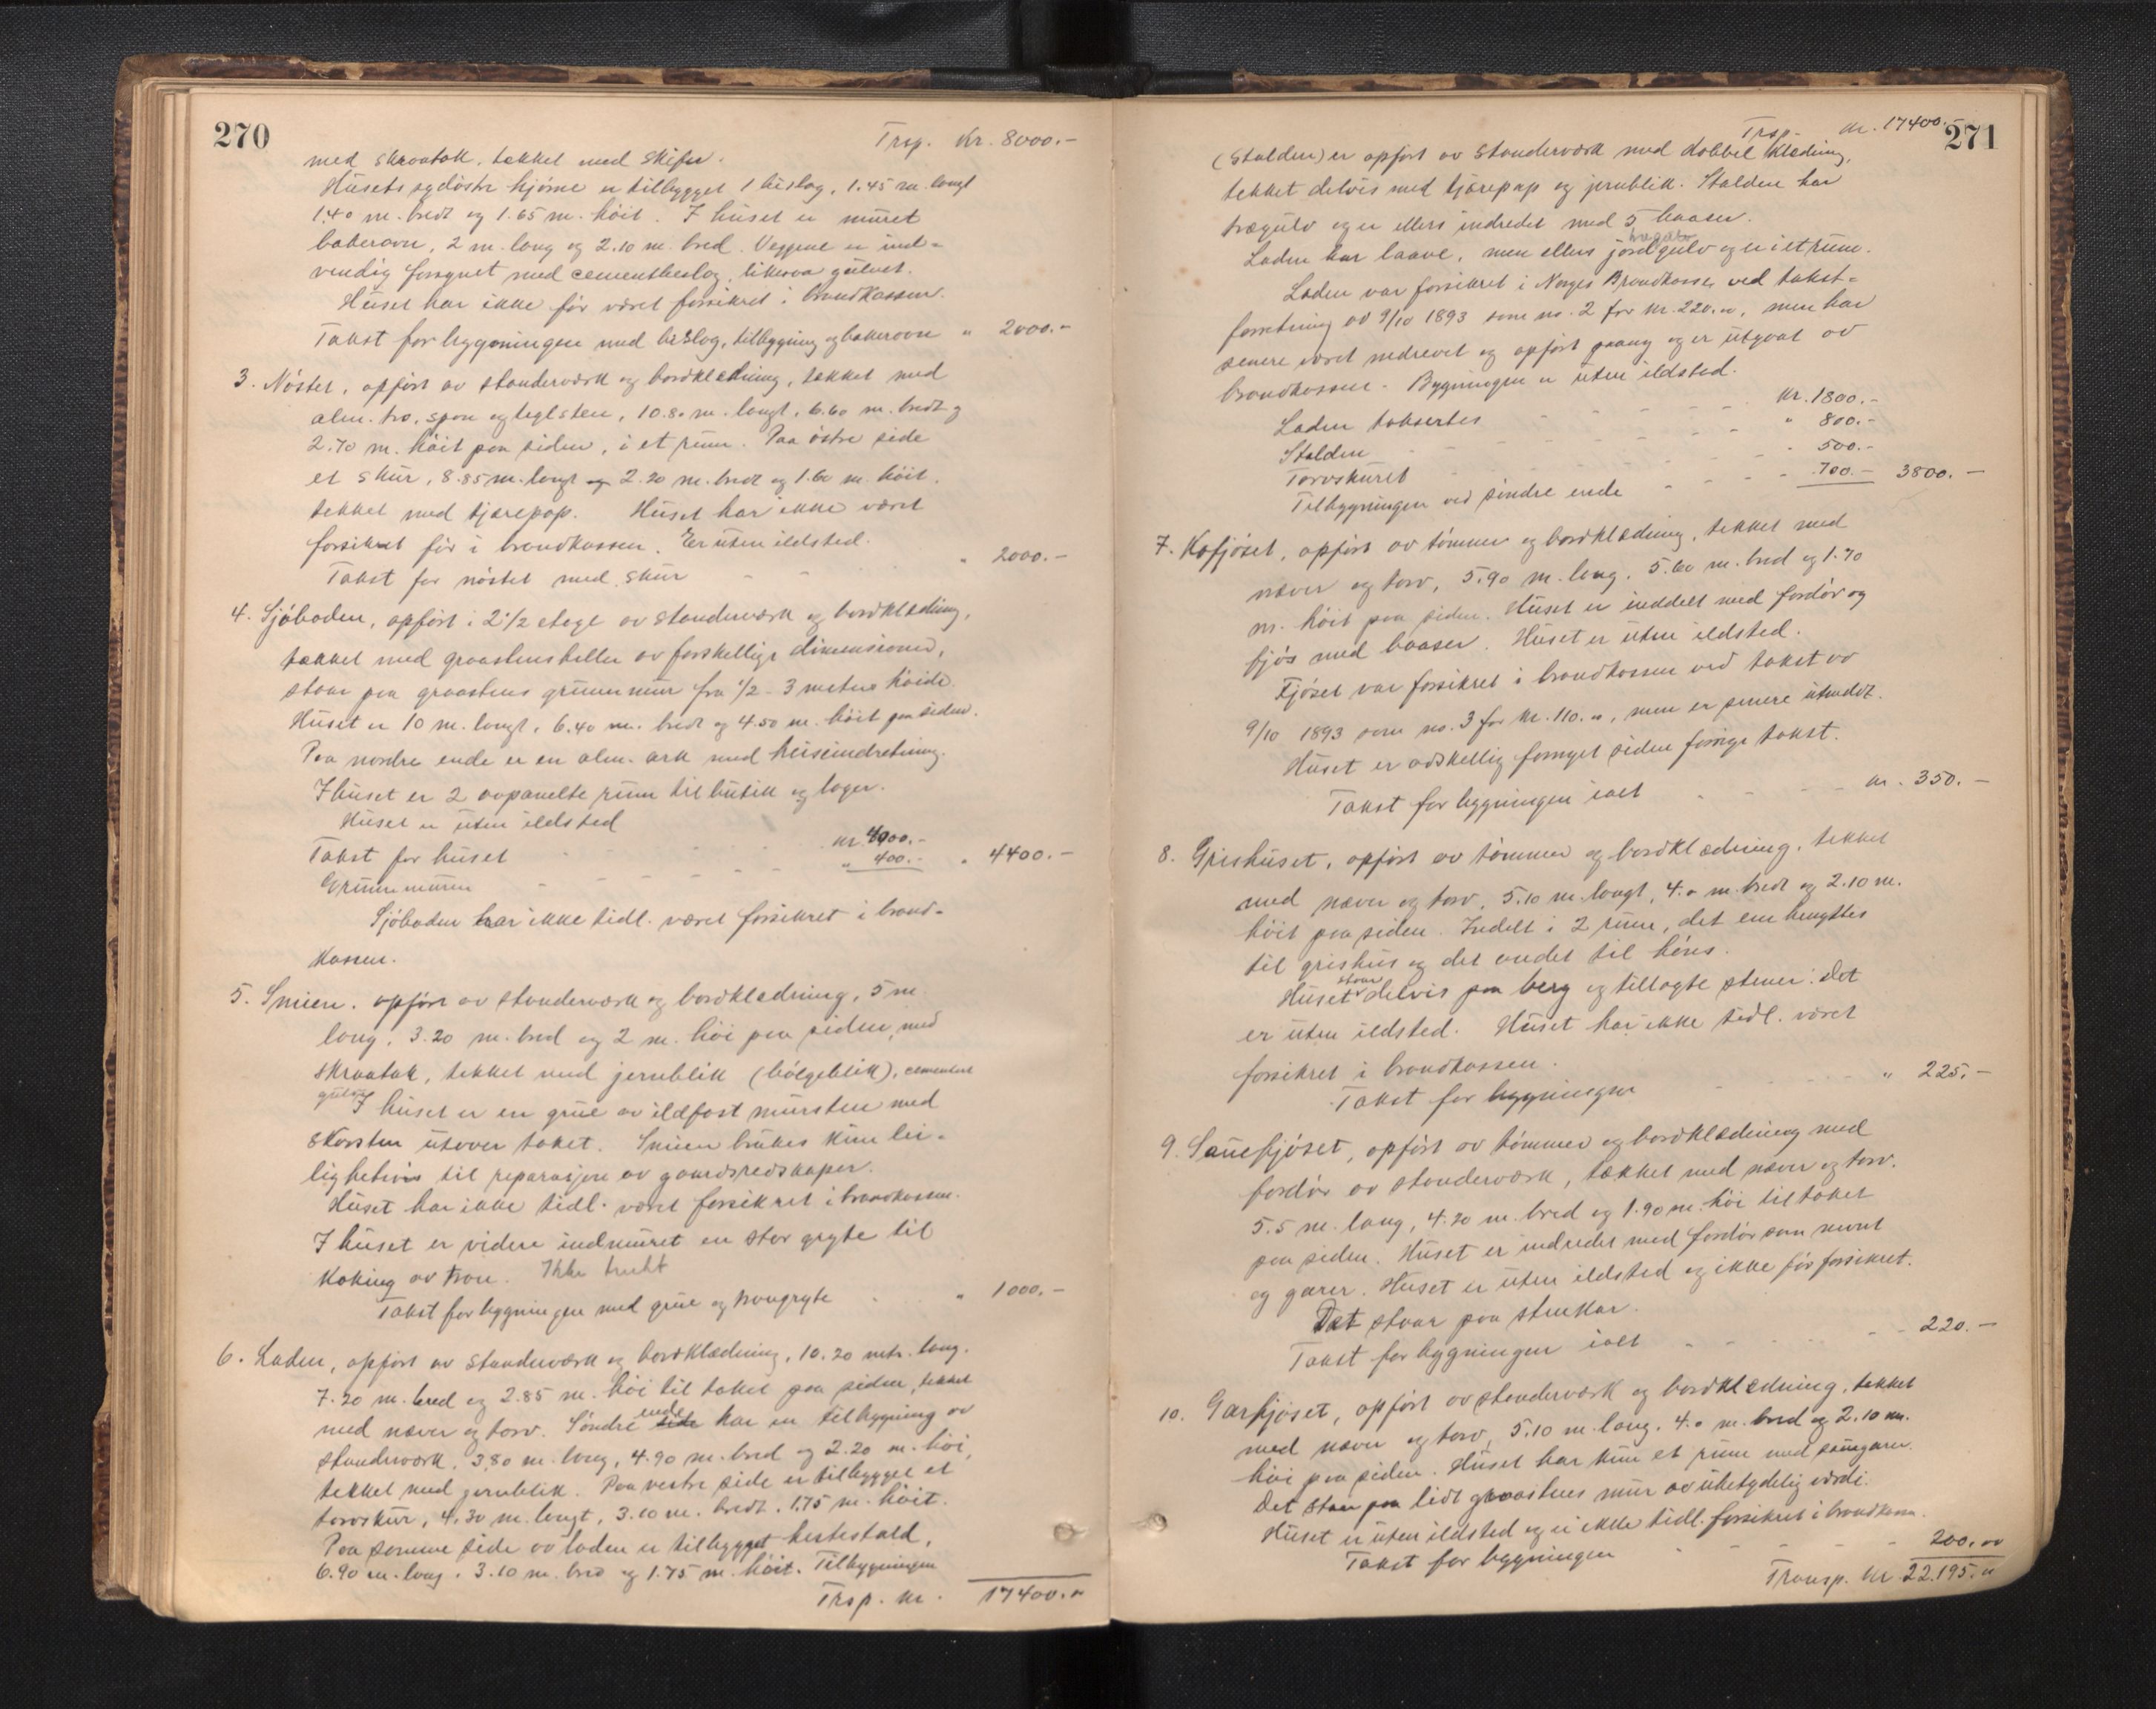 270
Trsp. Kr. 8000.-
med skraatak, tekket med skifer.
Husets sydöstre hjörne er tilbygget 1 bislag, 1.45 m. langt
1.40 m. bredt og 1.65 m. höit. I huset er muret
bakerovn, 2 m. lang og 2.10 m. bred. Veggene er ind-
vendig forsynet med cementbeslag, likesaa gulvet.
Huset har ikke för været forsikret i brandkassen.
Takst for bygningen med bislag, tilbygning og bakerovn " 2000.-
3. Nöstet, opfört av standerværk og bordklædning, tekket med
alm. tro, spon og teglsten, 10.80 m. langt, 6.60 m. bredt og
2.70 m. höit paa siden, i et rum. Paa östre side
et skur, 8.85 m. langt og 2.20 m. bredt og 1.60 m. höit,
tekket med tjærepap. Huset har ikke været
forsikret för i brandkassen. Er uten ildsted.
Takst for nöstet med skur - - " 2000.-
4. Sjöboden, opfört i 2 1/2 etage av standerværk og bordklædning,
tækket med graastensheller av forskellige dimensioner,
staar paa graastens grunnmur fra 1/2 - 3 meters höide.
Huset er 10 m. langt, 6.40 m. bredt og 4.50 m. höit paa siden.
Paa nordre ende er en alm. ark med heiseindretning.
I huset er 2 avpanelte rum til butik og lager.
Huset er uten ildsted
Takst for huset - - - - kr. 4000.-
Grunnmuren - - - - - " 400.- " 4400.-
Sjöboden har ikke tidl. været forsikret i brand-
kassen.
5. Smien, opfört av standerværk og bordklædning, 5 m.
lang, 3.20 m. bred og 2 m. höi paa siden, med
skraatak, tekket med jernblik (bölgeblik), cementert
gulv. I huset er en grue av ildfast mursten med
skorsten utover taket. Smien brukes kun lei-
lighetsvis til reparasjon av gaardsredskaper.
Huset har ikke tidl. været forsikret i brandkassen.
I huset er videre indmuret en stor gryte til
koking av tran. Ikke brukt
Takst for bygningen med grue og trangryte - " 1000.-
6. Laden, opfört av standerværk og bordklædning, 10.20 mtr. lang,
7.20 m. bred og 2.85 m. höi til taket paa siden, tekket
med næver og torv. Söndre ende har en tilbygning av
standerværk, 3.80 m. lang, 4.90 m. bred og 2.20 m. höi,
tekket med jernblik. Paa vestre side er tilbygget et
torvskur, 4.30 m. langt, 3.10 m. bredt, 1.75 m. höit.
Paa samme side av laden er tilbygget hestestald,
6.90 m. lang, 3.10 m. bred og 1.75 m. höit. Tilbygningen
Trsp. kr. 17400.-
271
Trsp. kr. 17400.-
(Stalden) er opfört av standerværk med dobbel klædning,
tekket delvis med tjærepap og jernblik. Stalden har
trægulv og er ellers indredet med 5 baaser.
tregulv
Laden har laave, men ellers jordgulv og er i et rum.
Laden var forsikret i Norges Brandkasse ved takst-
forretning av 9/10 1893 som no. 2 for kr. 220.00, men har
senere været nedrevet og opfört paany og er utgaat av
brandkassen. Bygningen er uten ildsted.
Laden taksertes - - - - kr. 1800.-
Stalden - - - - - " 800.-
Torvskuret - - - - - 500.-
Tilbygningen ved söndre ende - - - 700.- 3800.-
7. Kofjöset, opfört av tömmer og bordklædning, tekket med
næver og torv, 5.90 m. lang, 5.60 m. bred og 1.70
m. höit paa siden. Huset er inddelt med fordör og
fjös med baaser. Huset er uten ildsted.
Fjöset var forsikret i brandkassen ved takst av
9/10 1893 som no. 3 for kr. 110.00, men er senere utmeldt.
Huset er adskellig fornyet siden forrige takst.
Takst for bygningen ialt - - - kr. 350.-
8. Grishuset, opfört av tömmer og bordklædning, tekket
med næver og torv, 5.10 m. langt, 4.0 m. bredt og 2.10 m.
höit paa siden. Indelt i 2 rum, det ene benyttes
til grishus og det andet til höns.
Huset staar delvis paa berg og tillagte stener. Det
er uten ildsted. Huset har ikke tidl. været
forsikret i brandkassen.
Takst for bygningen - - - " 225.-
9. Sauefjöset, opfört av tömmer og bordklædning med
fordör av standerværk, tækket med næver og torv.
5.5 m. lang, 4.20 m. bred og 1.90 m. höi til taket
paa siden. Huset er indredet med fordör som nevnt
og garer. Huset er uten ildsted og ikke för forsikret.
Det staar paa stenkar.
Takst for bygningen ialt - - - - 220.-
10. Garfjöset, opfört av standerværk og bordklædning, tekket
med næver og torv, 5.10 m. lang, 4.0 m. bred og 2.10 m.
höi paa siden. Huset har kun et rum med sauegarer.
Det staar paa lidt graastens mur av ubetydelig værdi.
Huset er uten ildsted og er ikke tidl. forsikret i brandkassen.
Takst for bygningen - - - - 200.00
Transp. kr. 22.195.00